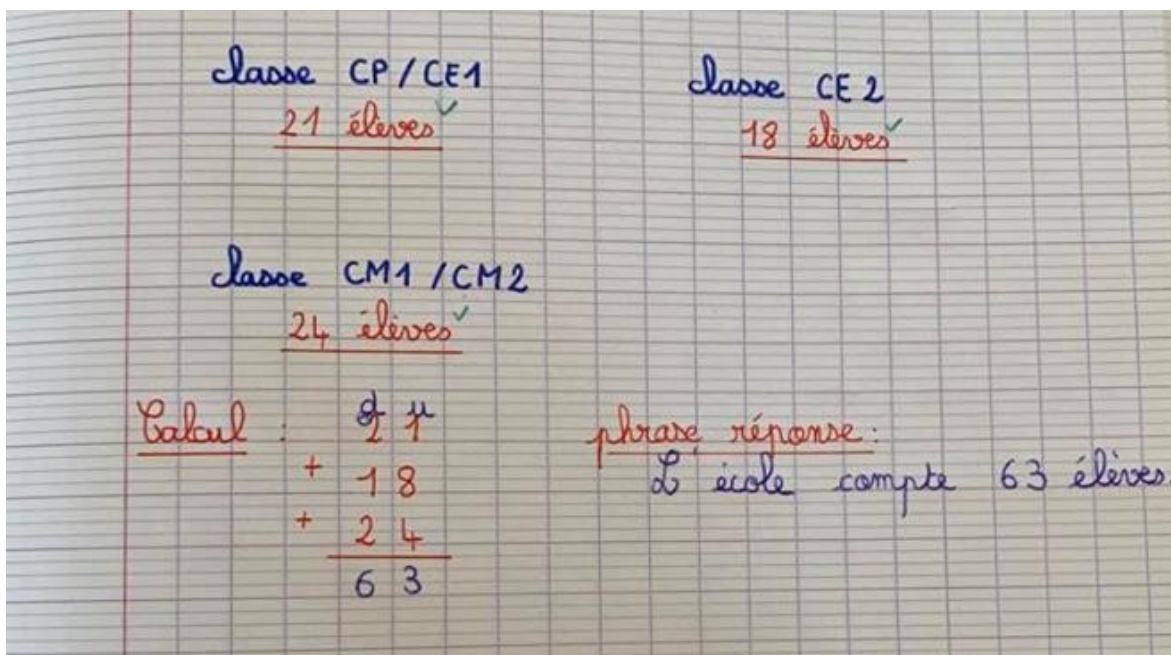 classe CP / CE1
21 élèves ✓
classe CE2
18 élèves ✓
classe CM1 / CM2
24 élèves ✓
Calcul :
d u
2 1
+ 1 8
+ 2 4
6 3
phrase réponse :
L'école compte 63 élèves.